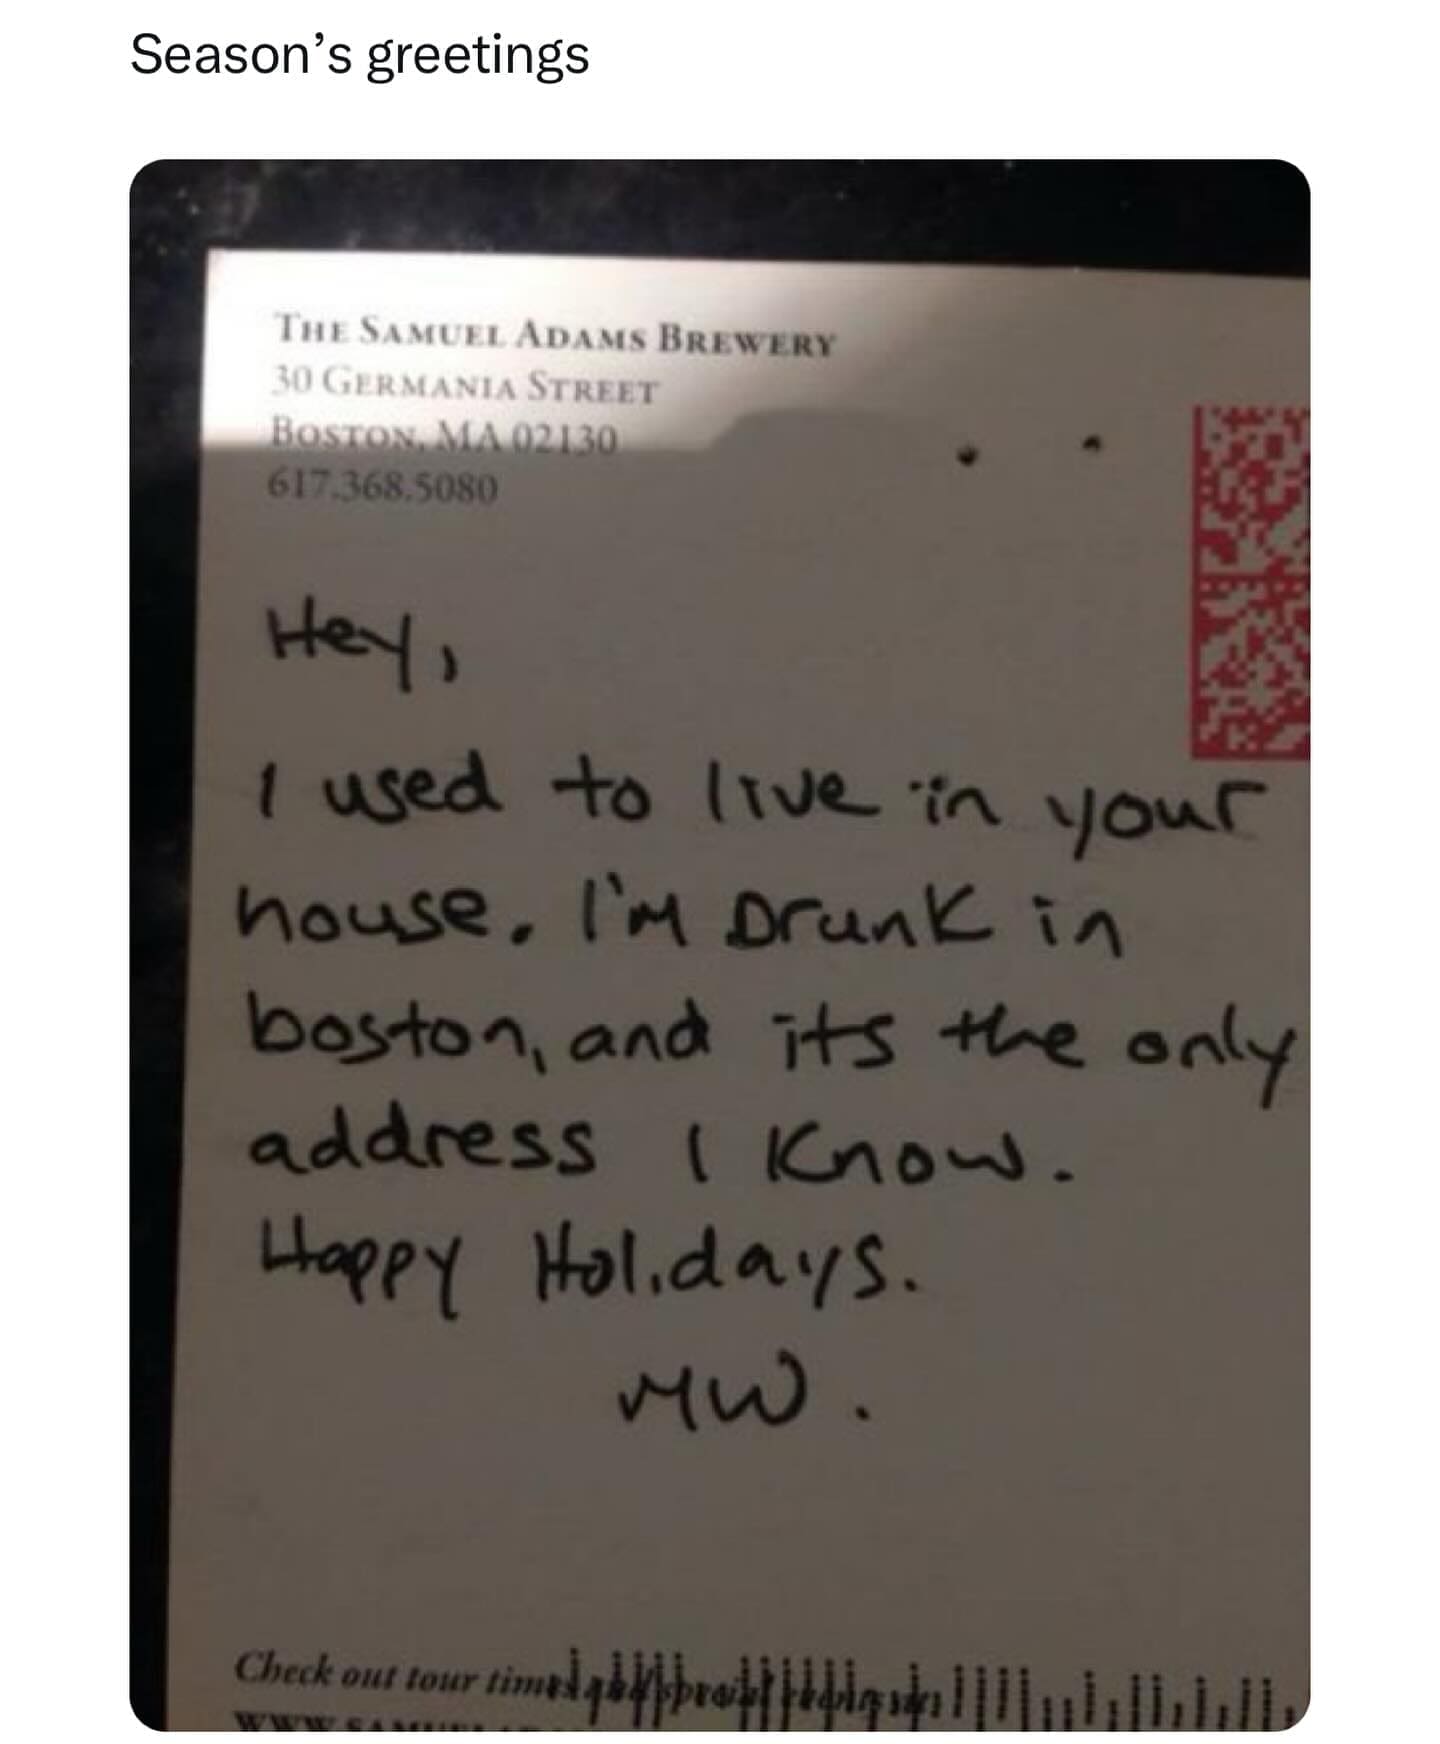 Season’s greetings
THE SAMUEL ADAMS BREWERY
30 GERMANIA STREET
BOSTON, MA 02130
617.368.5080
Hey,
I used to live in your
house. I'm Drunk in
boston, and its the only
address I Know.
Happy Holidays.
MW.
Check out tour times